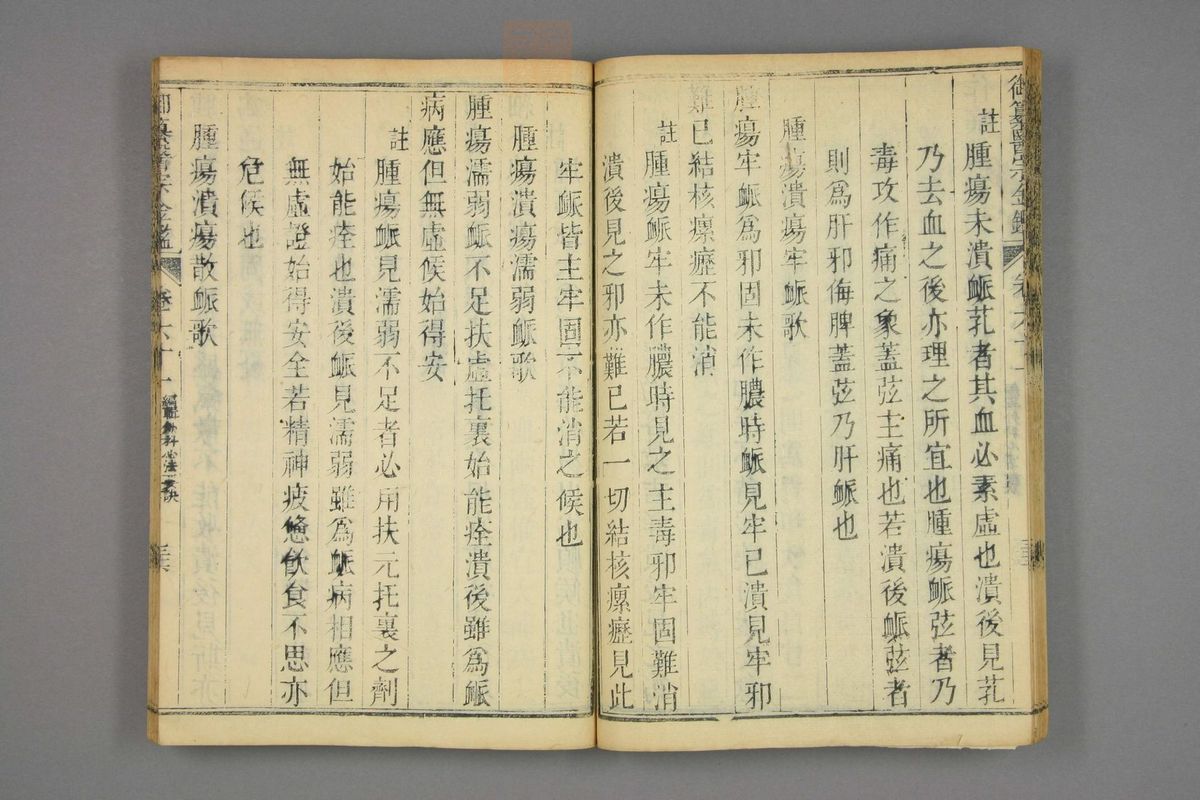 御纂醫宗金鑑 卷六十一
註腫瘍未潰䘑芤者其血必素虛也潰後見芤
乃去血之後亦理之所宜也腫瘍䘑弦者乃
毒攻作痛之象蓋弦主痛也若潰後䘑弦者
則爲肝邪侮脾蓋弦乃肝䘑也
腫瘍潰瘍牢䘑歌
腫瘍牢䘑爲邪固未作膿時䘑見牢已潰見牢邪
難已結核瘰癧不能消
註腫瘍䘑牢未作膿時見之主毒邪牢固難消
潰後見之邪亦難已若一切結核瘰癧見此
牢䘑皆主牢固不能消之候也
腫瘍潰瘍濡弱䘑歌
腫瘍濡弱䘑不足扶虛托裏始能痊潰後雖爲䘑
病應但無虛候始得安
註腫瘍䘑見濡弱不足者必用扶元托裏之劑
始能痊也潰後䘑見濡弱雖爲䘑病相應但
無虛證始得安全若精神疲憊飲食不思亦
危候也
腫瘍潰瘍散䘑歌
御纂醫宗金鑑 卷六十一 編輯外科心法要訣 三六